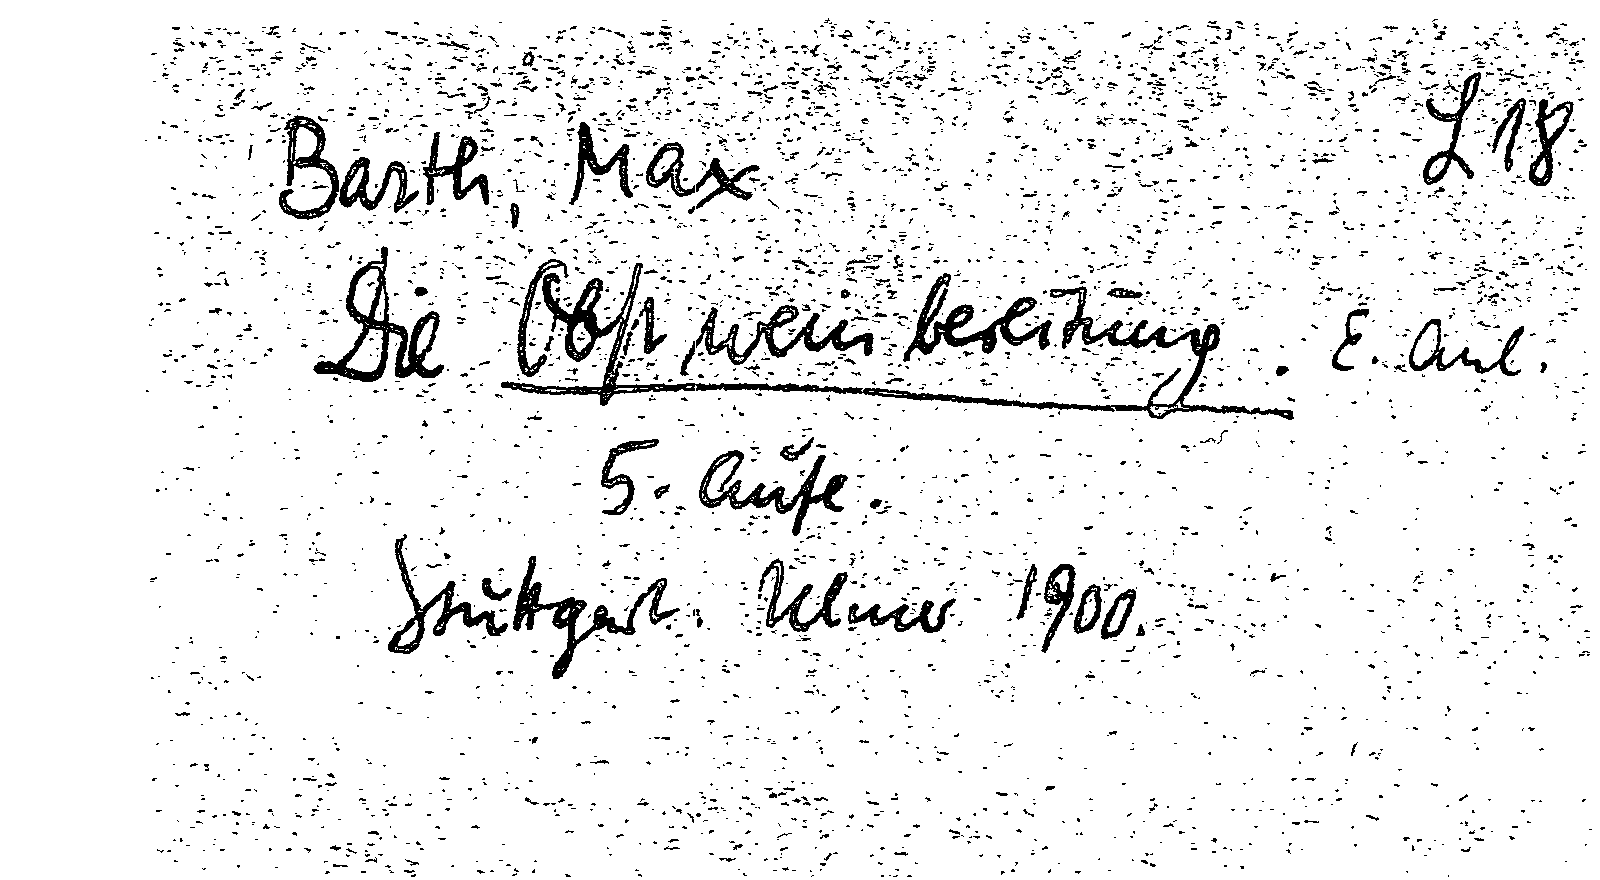 L 18
Barth, Max
Die Obstweinbereitung. E. Anl.
5. Aufl.
Stuttgart. Ulmer 1900.